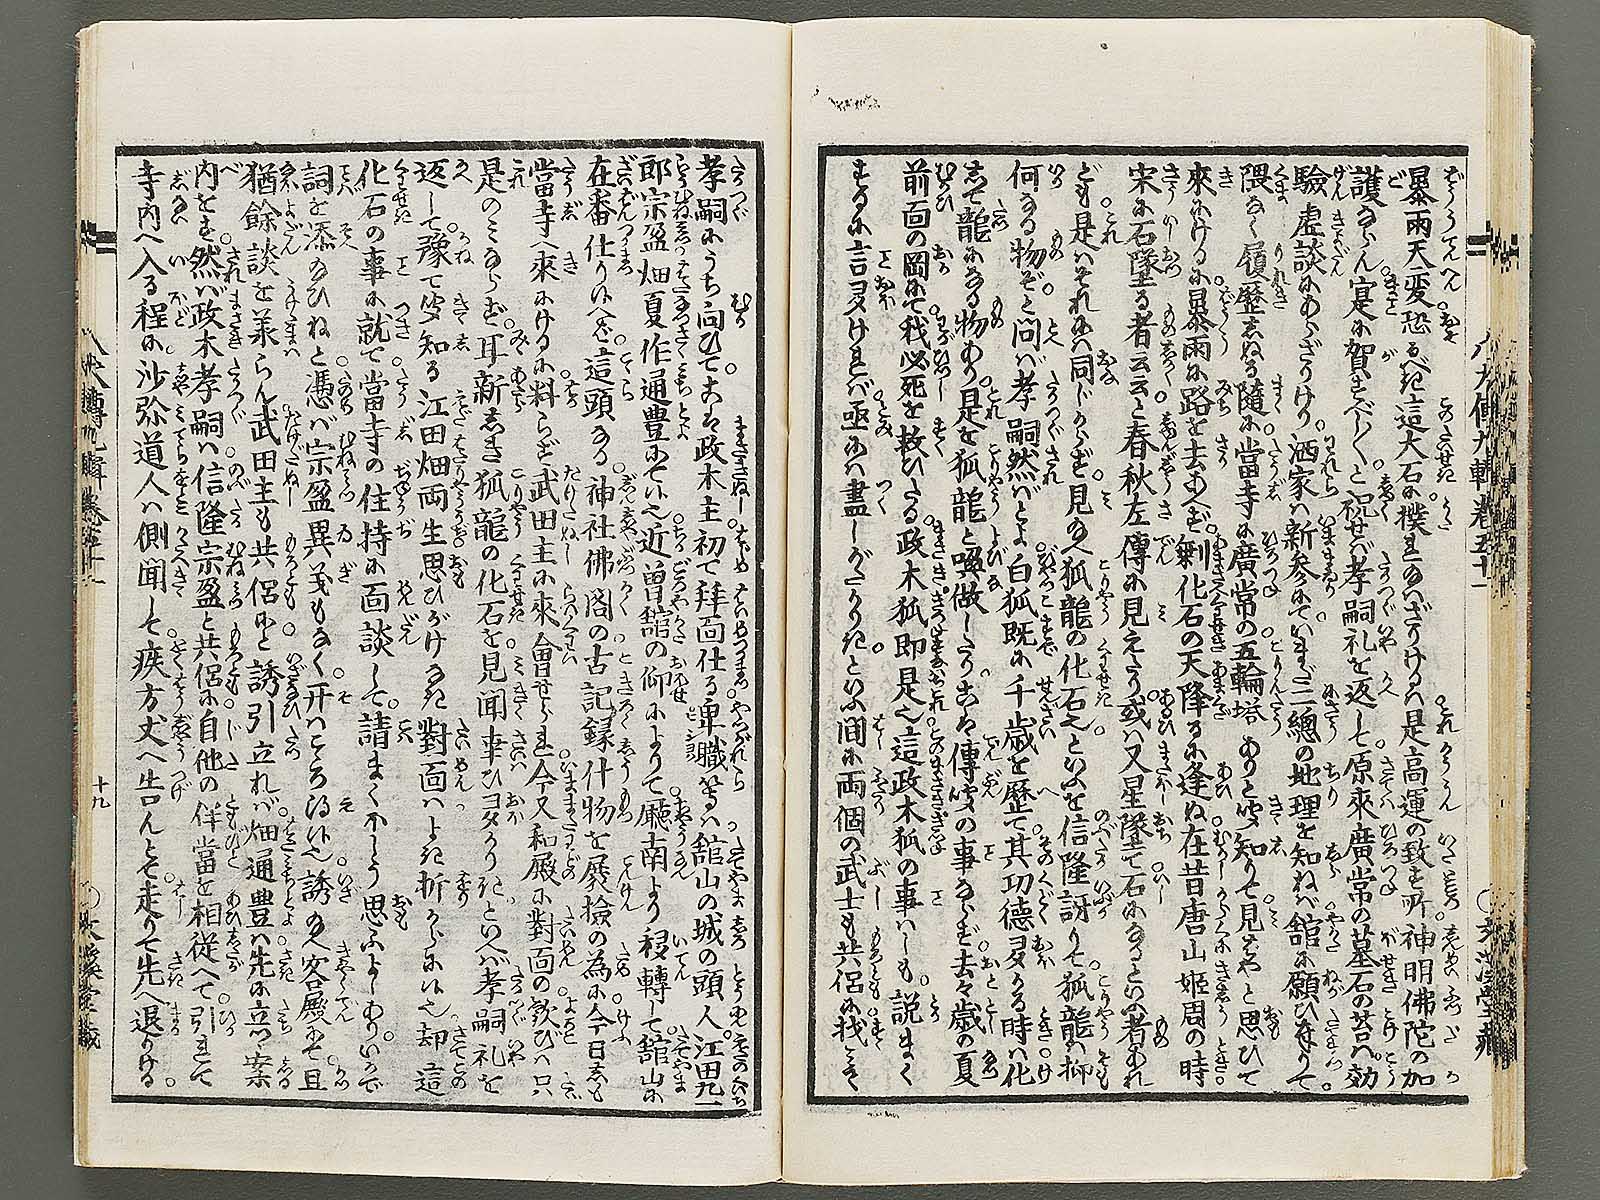 暴雨天変恐るべき這大石に撲れ給はざりけるは是高運の致す所神明佛陀の加
護ならん寔に賀すべし〳〵と祝せば孝嗣礼を返して原來廣常の墓石の苔は效
驗虚談にあらざりけり洒家は新參にていまだ二總の地理を知ねば舘に願ひまうして
隈なく履歴しぬる隨に當寺に廣常の五輪塔ありと听知りて見ばやと思ひて
來にけるに暴雨に路を去あへず剰化石の天降るに逢ぬ在昔唐山姫周の時
宋に石墜る者云云と春秋左傳に見えたり或は又星墜て石になるといふ者あれ
ども是はそれには同じからず見給へ狐龍の化石也といふを信隆訝りて狐龍は抑
何なる物ぞと問ば孝嗣然ばとよ白狐既に千歳を歴て其功德ある時は化
して龍になる物あり是を狐龍と喚做したりこは傳聞の事ならず去々歳の夏
前面の岡にて我必死を救ひたる政木狐即是也這政木狐の事はしも説まく
するに言多ければ亟には盡しがたかりきといふ間に両個の武士も共侶に找
孝嗣にうち向ひてこは政木主初て拜面仕る卑職等は舘山の城の頭人江田九一
郎宗盈畑夏作通豊にて候也近曽舘の仰によりて廰南より移轉して舘山に
在番仕り候へば這頭なる神社佛閣の古記録什物を展撿の為に今日しも
當寺へ來にけるに料らず武田主に來會せられ今又和殿に對面の歡びは只
是のみならず耳新しき狐龍の化石を見聞幸ひ多かりきといへば孝嗣礼を
返して豫て听知る江田畑両生思ひがけなき對面はよき折からに候也却這
化石の事に就て當寺の住持に面談して請まくほしう思ふよしありいかで
詞を添給ひねと憑めば宗盈異義もなく开はこころ得候也誘給へ客殿にて且
猶餘談を承らん武田主も共侶にと誘引立れば畑通豊は先に立つ案
内をす然ば政木孝嗣は信隆宗盈と共侶に自他の伴當を相從へて引れて
寺内へ入る程に沙弥道人は側聞して疾方丈へ告んとて走りて先へ退りける
八犬傳九輯卷五十一
十九
文溪堂藏